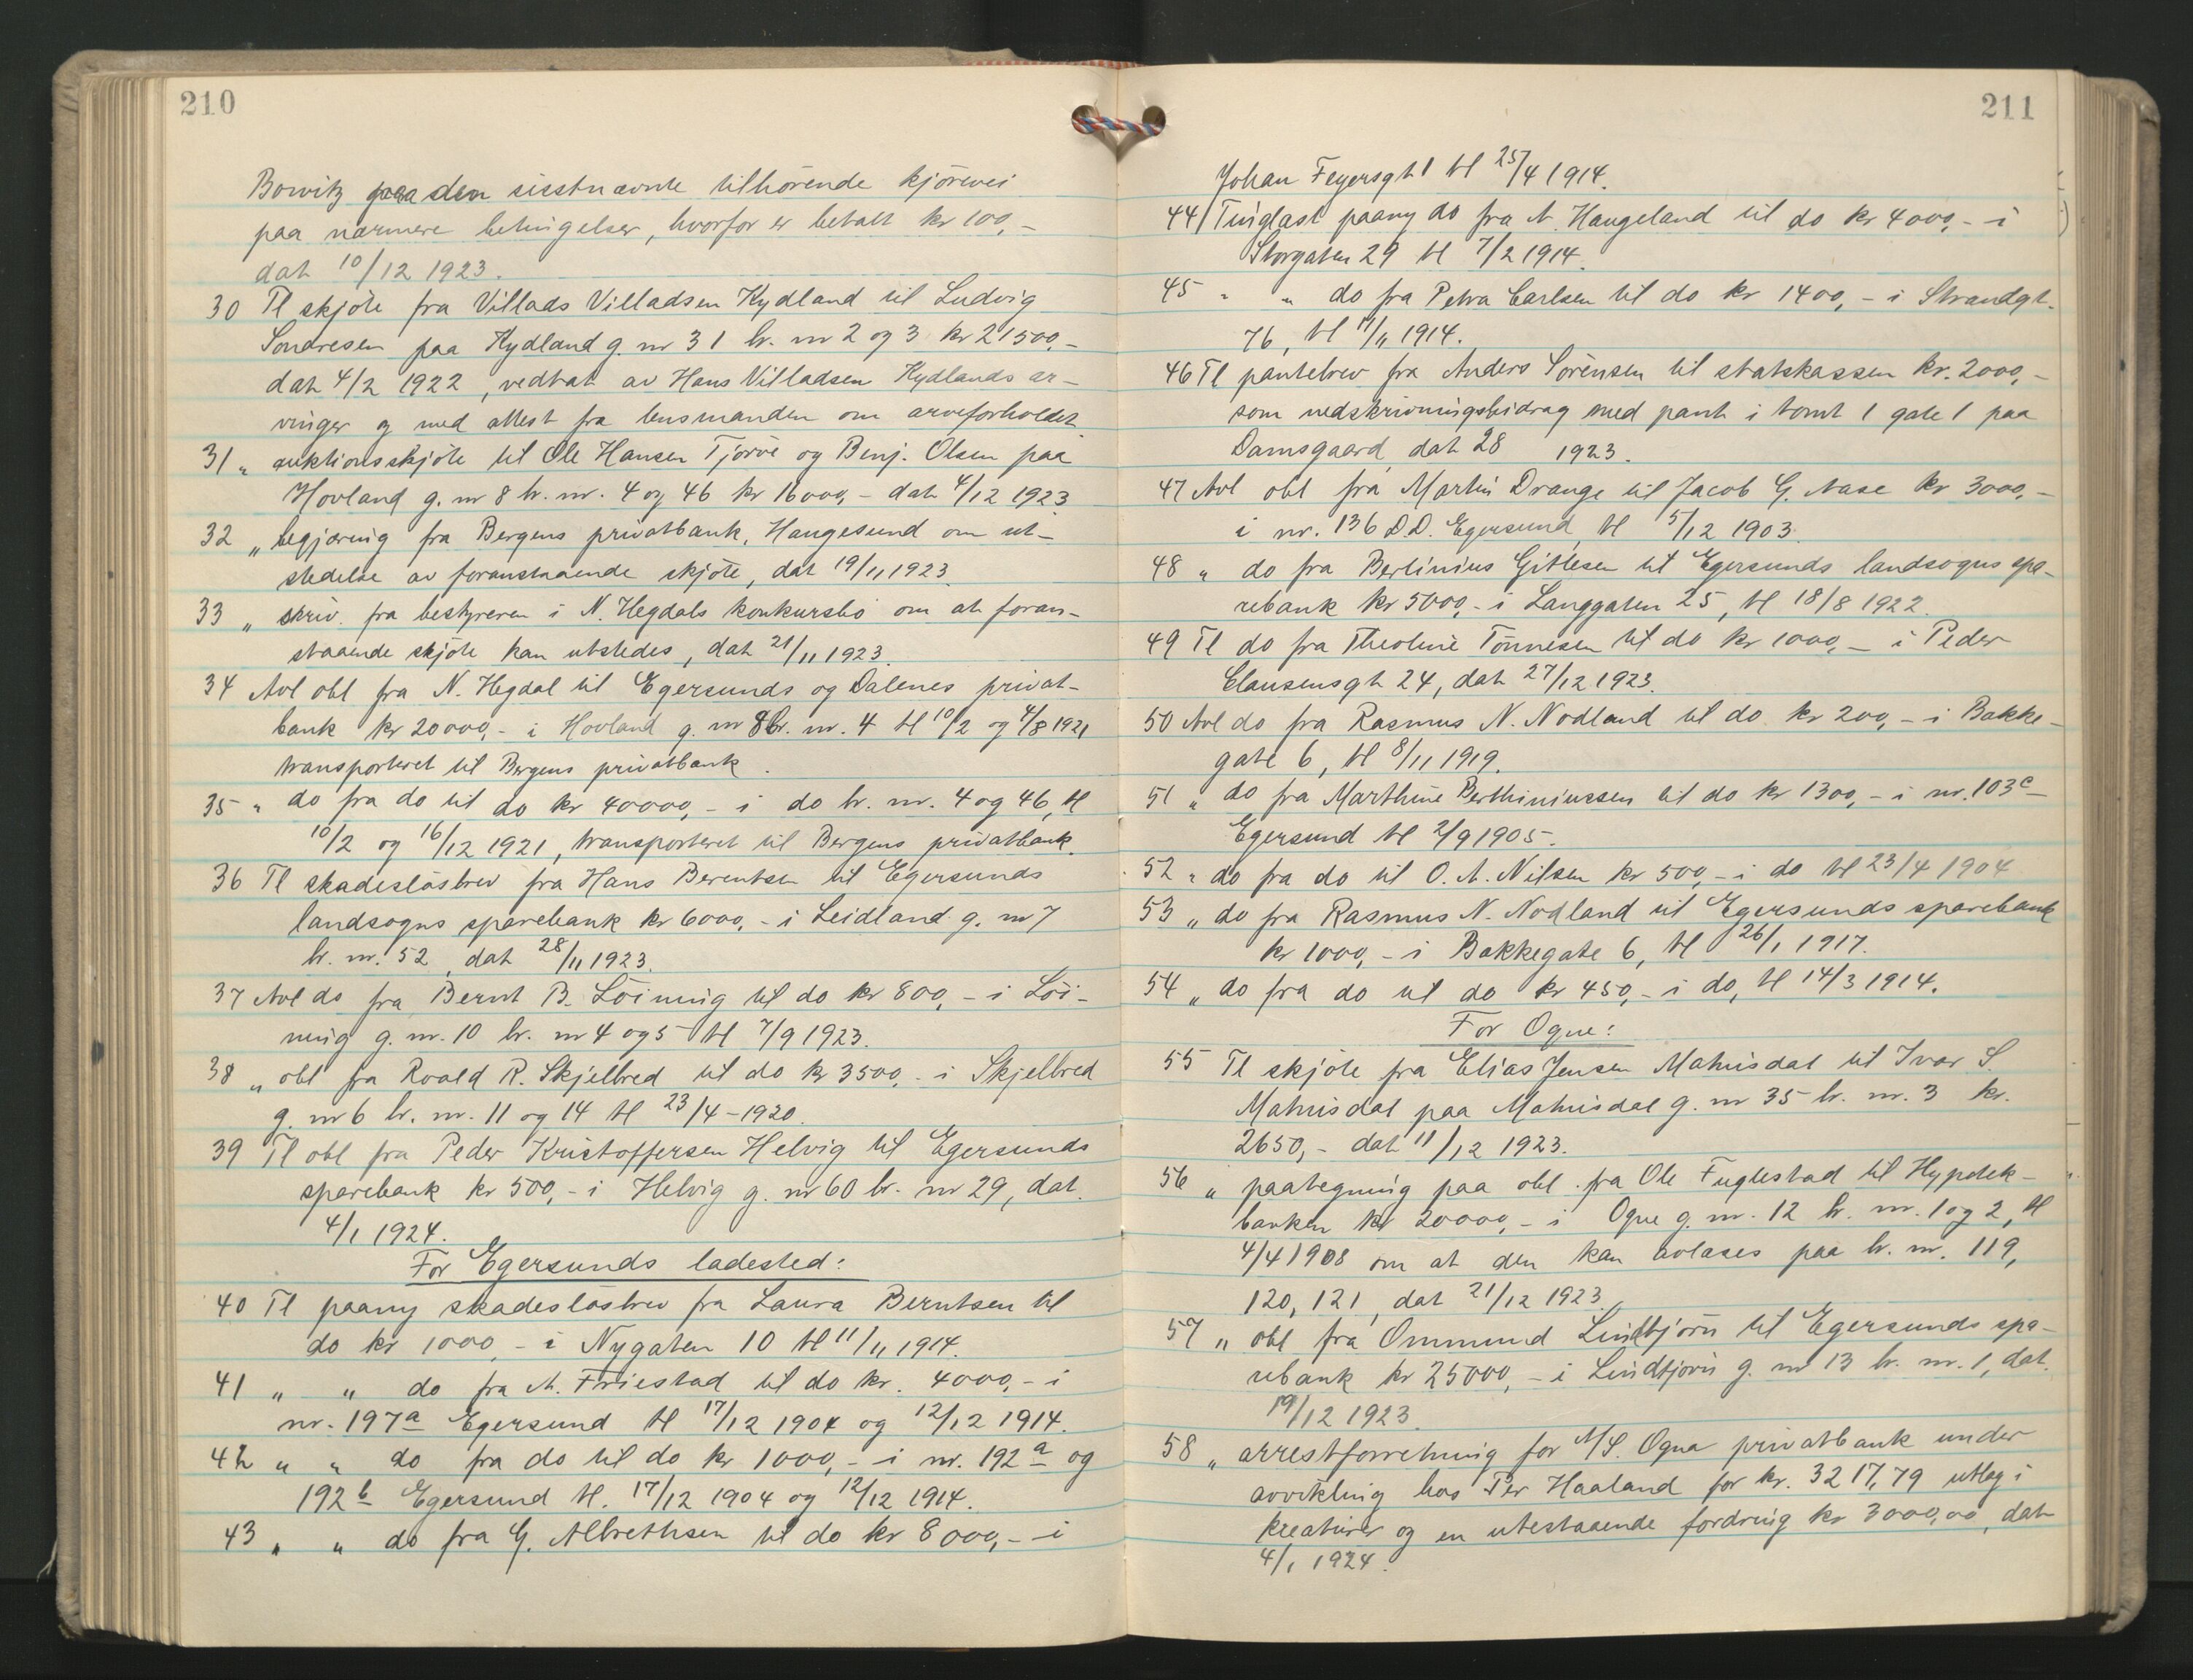 210
Bowitz paa den sisstnævnte tilhörende kjörevei
paa nærmere betingelser, hvorfor er betalt kr 100,-
dat 10/12 1923.
30 Tl skjöte fra Villads Villadsen Hydland til Ludvig
Sondresen paa Hydland g. nr 31 br. nr 2 og 3 kr 21500,-
dat 4/2 1922, vedtat av Hans Villadsen Hydlands ar-
vinger og med attest fra lensmanden om arveforholdet
31 „ auktionsskjöte til Ole Hansen Tjörve og Benj. Olsen paa
Hovland g. nr 8 br. nr. 4 og 46 kr 16000,- dat 4/12 1923
32 „ begjæring fra Bergens privatbank, Haugesund om ut-
stedelse av foranstaaende skjöte, dat 19/11 1923.
33 „ skriv. fra bestyreren i N. Hegdals konkursbo om at foran-
staaende skjöte kan utstedes, dat 21/11 1923.
34 Avl obl fra N. Hegdal til Egersunds og Dalenes privat-
bank kr 20000,- i Hovland g. nr 8 br. nr. 4 tl 10/2 og 4/8 1921
transporteret til Bergens privatbank.
35 „ do fra do til do kr 40000,- i do br. nr. 4 og 46, tl
10/2 og 16/12 1921, transporteret til Bergens privatbank.
36 Tl skadeslösbrev fra Hans Berentsen til Egersunds
landsogns sparebank kr 6000,- i Leidland g. nr 7
br. nr. 52, dat 28/11 1923.
37 Avl do fra Bernt B. Löining til do kr 800,- i Löi-
ning g. nr. 10 br. nr 4 og 5 tl 7/9 1923.
38 „ obl fra Roald R. Skjelbred til do kr 3500,- i Skjelbred
g. nr 6 br. nr. 11 og 14 tl 23/4-1920.
39 Tl obl fra Peder Kristoffersen Helvig til Egersunds
sparebank kr 500,- i Helvig g. nr 60 br. nr 29, dat.
4/1 1924.
For Egersunds ladested:
40 Tl paany skadeslösbrev fra Laura Berntsen til
do kr 1000,- i Nygaten 10 tl 11/11 1914.
41 „ „ do fra A. Friestad til do kr. 4000,- i
nr. 197a Egersund tl 17/12 1904 og 12/12 1914.
42 „ „ do fra do til do kr 1000,- i nr. 192a og
192b Egersund tl. 17/12 1904 og 12/12 1914.
43 „ „ do fra G. Albrethsen til do kr 8000,- i
211
Johan Feyersgt 1 tl 25/4 1914.
44 Tinglæst paany do fra A. Haugeland til do kr 4000,- i
Storgaten 29 tl 7/2 1914.
45 „ „ do fra Petra Carlsen til do kr 1400,- i Strandgt.
76, tl 17/11 1914.
46 Tl pantebrev fra Anders Sörensen til statskassen kr. 2000,-
som nedskrivningsbidrag med pant i tomt 1 gate 1 paa
Damsgaard, dat 28 1923.
47 Avl obl fra Martin Drange til Jacob G. Aase kr 3000,-
i nr. 136 D.D. Egersund, tl 5/12 1903.
48 „ do fra Bertinius Gitlesen til Egersunds landsogns spa-
rebank kr 5000,- i Langgaten 25, tl 18/8 1922.
49 Tl do fra Theoline Tönnesen til do kr 1000,- i Peder
Clausensgt 24, dat 27/12 1923.
50 Avl do fra Rasmus N. Nodland til do kr 200,- i Bakke-
gate 6, tl 8/11 1919.
51 „ do fra Marthine Berthiniussen til do kr 1300,- i nr. 103c
Egersund tl 2/9 1905.
52 „ do fra do til O. A. Nilsen kr 500,- i do tl 23/4 1904
53 „ do fra Rasmus N. Nodland til Egersunds sparebank
kr 1000,- i Bakkegate 6, tl 26/1 1917.
54 „ do fra do til do kr 450,- i do, tl 14/3 1914.
For Ogne:
55 Tl skjöte fra Elias Jensen Matnisdal til Ivar S.
Matnisdal paa Matnisdal g. nr 35 br. nr. 3 kr.
2650,- dat 11/12 1923.
56 „ paategning paa obl. fra Ole Fuglestad til Hypotek-
banken kr 20000,- i Ogne g. nr. 12 br. nr. 1 og 2, tl
4/4 1908 om at den kan avlæses paa br. nr. 119,
120, 121, dat 21/12 1923.
57 „ obl fra Ommund Lindtjörn til Egersunds spa-
rebank kr 25000,- i Lindtjörn g. nr 13 br. nr. 1, dat.
19/12 1923.
58 „ arrestforretning for A/S. Ogna privatbank under
avvikling hos Per Haaland for kr. 3217,79 utlæg i
kreaturer og en utestaaende fordring kr 3000,00, dat
4/1 1924.